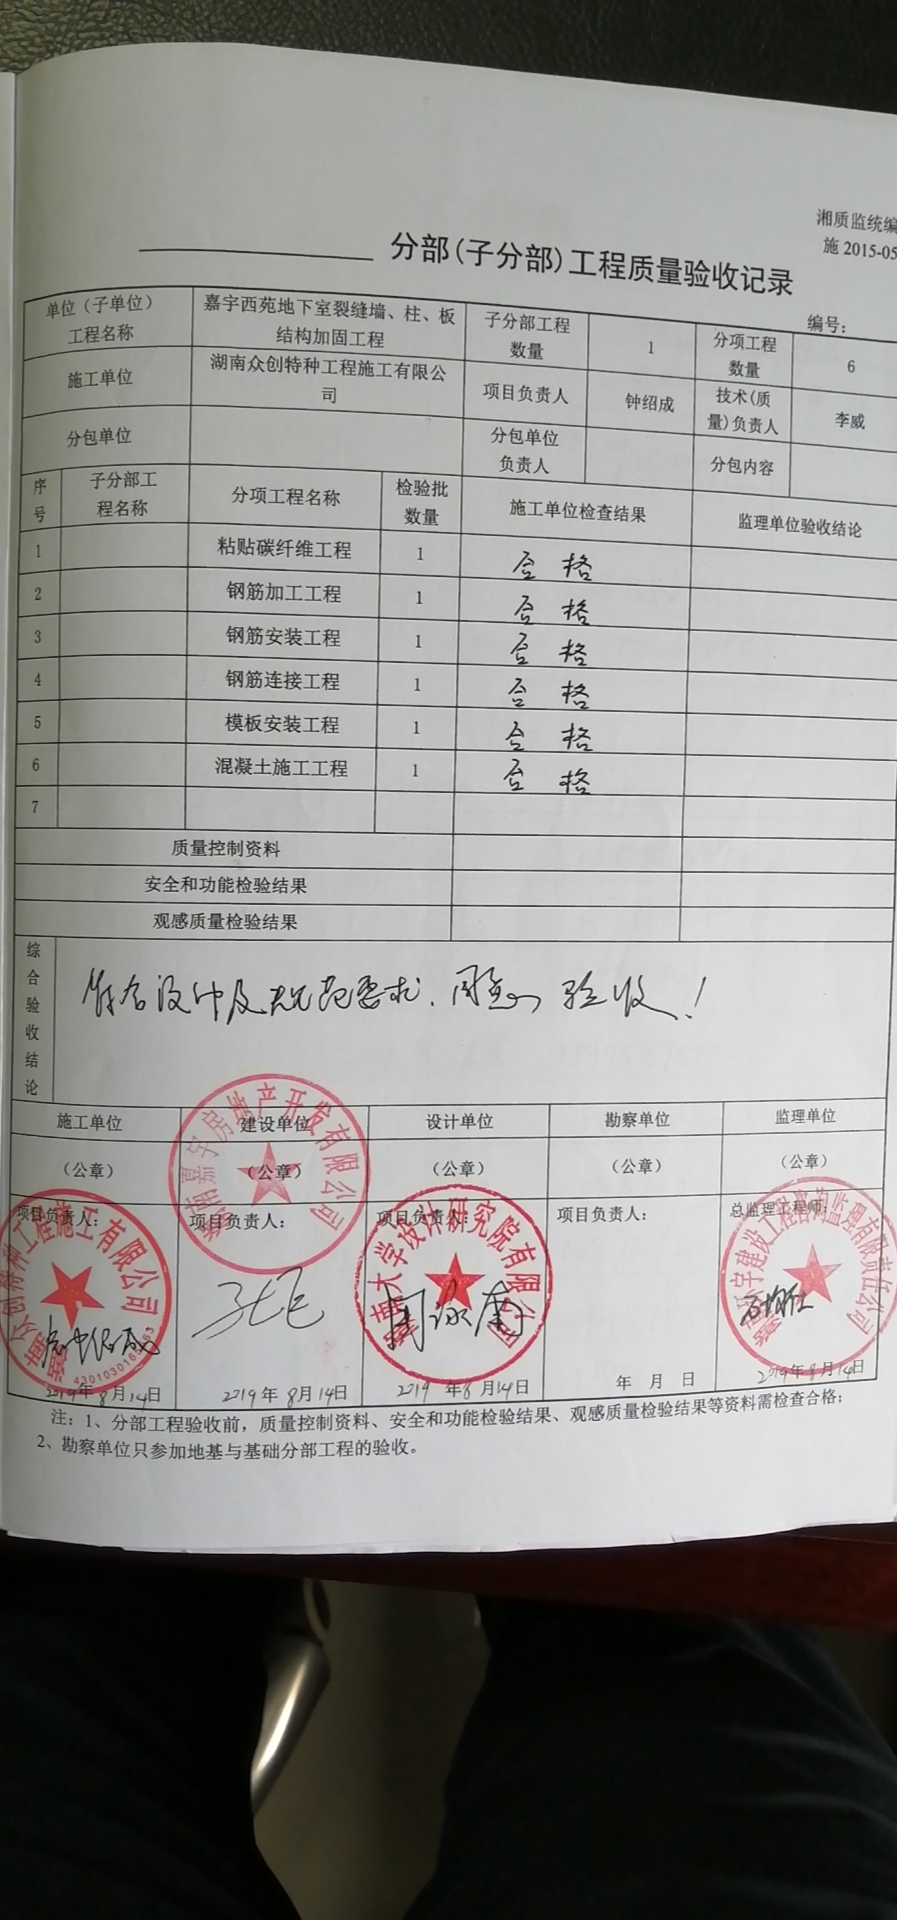 湘质监统编
施 2015-05
分部(子分部)工程质量验收记录
编号：
单位（子单位）工程名称 嘉宇西苑地下室裂缝墙、柱、板结构加固工程 子分部工程数量 1 分项工程数量 6
施工单位 湖南众创特种工程施工有限公司 项目负责人 钟绍成 技术(质量)负责人 李威
分包单位 分包单位负责人 分包内容
序号 子分部工程名称 分项工程名称 检验批数量 施工单位检查结果 监理单位验收结论
1 粘贴碳纤维工程 1 合格
2 钢筋加工工程 1 合格
3 钢筋安装工程 1 合格
4 钢筋连接工程 1 合格
5 模板安装工程 1 合格
6 混凝土施工工程 1 合格
7
质量控制资料
安全和功能检验结果
观感质量检验结果
综合验收结论 符合设计及规范要求，同意验收！
施工单位 建设单位 设计单位 勘察单位 监理单位
（公章） （公章） （公章） （公章） （公章）
项目负责人： 项目负责人： 项目负责人： 项目负责人： 总监理工程师：
2019年8月14日 2019年8月14日 2019年8月14日 年 月 日 2019年8月14日
注：1、分部工程验收前，质量控制资料、安全和功能检验结果、观感质量检验结果等资料需检查合格；
2、勘察单位只参加地基与基础分部工程的验收。